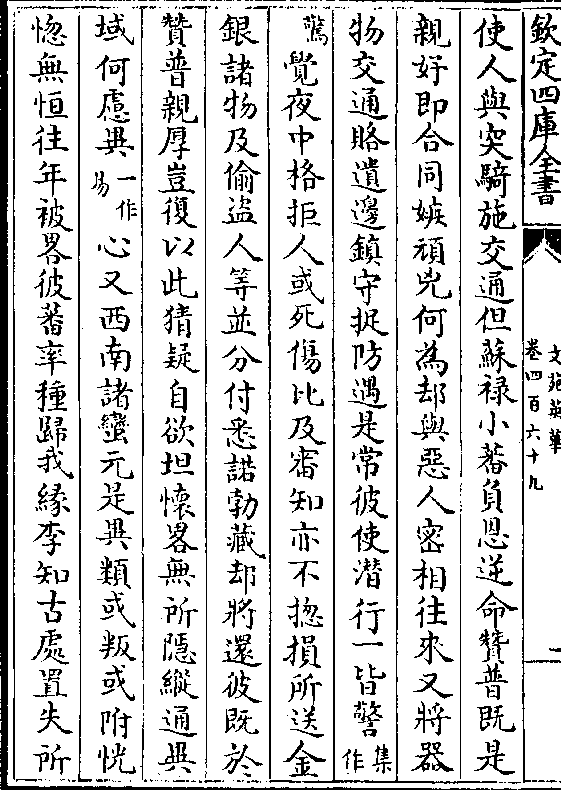 欽定四庫全書
文苑英華
卷四百六十九
二
使人與突騎施交通但蘇禄小蕃負恩逆命贊普既是
親好即合同嫉頑兇何為却與惡人密相往來又將器
物交通賂遺邊鎮守捉防遏是常彼使潜行一皆警集作
驚覺夜中格拒人或死傷比及審知亦不揔損所送金
銀諸物及偷盗人等並分付悉諾勃藏却將還彼既於
贊普親厚豈復以此猜疑自欲坦懷畧無所隱縱通異
域何慮異一作易心又西南諸蠻元是異類或叛或附恍
惚無恒往年被畧彼蕃率種歸我緣李知古處置失所